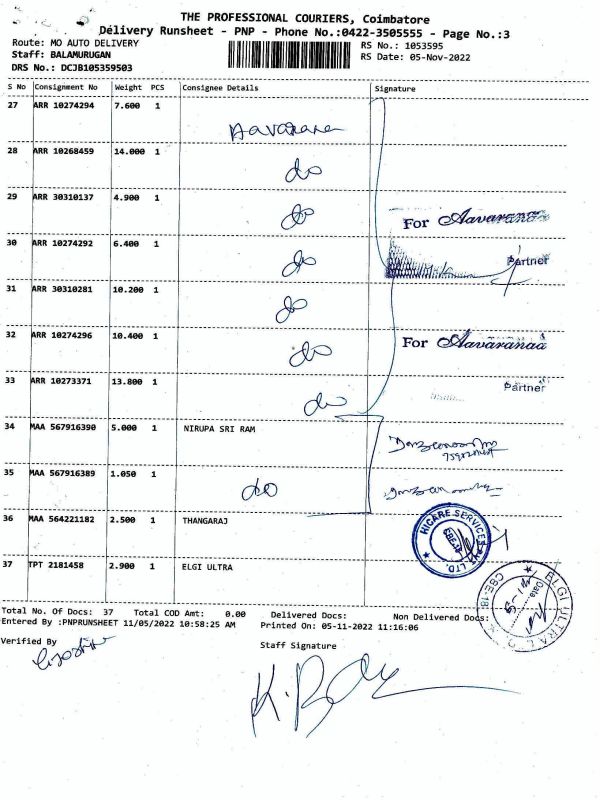 THE PROFESSIONAL COURIERS, Coimbatore
Delivery Runsheet - PNP - Phone No.:0422-3505555 - Page No.:3
Route: MO AUTO DELIVERY
RS No.: 1053595
Staff: BALAMURUGAN
RS Date: 05-Nov-2022
DRS No.: DCJB105359503
S No Consignment No Weight PCS Consignee Details Signature
27 ARR 10274294 7.600 1
Aavaranaa
28 ARR 10268459 14.000 1
do
29 ARR 30310137 4.900 1
do
For Aavaranaa
30 ARR 10274292 6.400 1
do
Partner
31 ARR 30310281 10.200 1
do
32 ARR 10274296 10.400 1
do
For Aavaranaa
33 ARR 10273371 13.800 1
do
Partner
34 MAA 567916390 5.000 1 NIRUPA SRI RAM
35 MAA 567916389 1.050 1
do
36 MAA 564221182 2.500 1 THANGARAJ
HICARE SERVICES PVT. LTD.
CBE-18
37 TPT 2181458 2.900 1 ELGI ULTRA
ELGI ULTRA
CBE-18
Date
Total No. Of Docs: 37 Total COD Amt: 0.00 Delivered Docs: Non Delivered Docs:
Entered By :PNPRUNSHEET 11/05/2022 10:58:25 AM Printed On: 05-11-2022 11:16:06
Verified By
Staff Signature